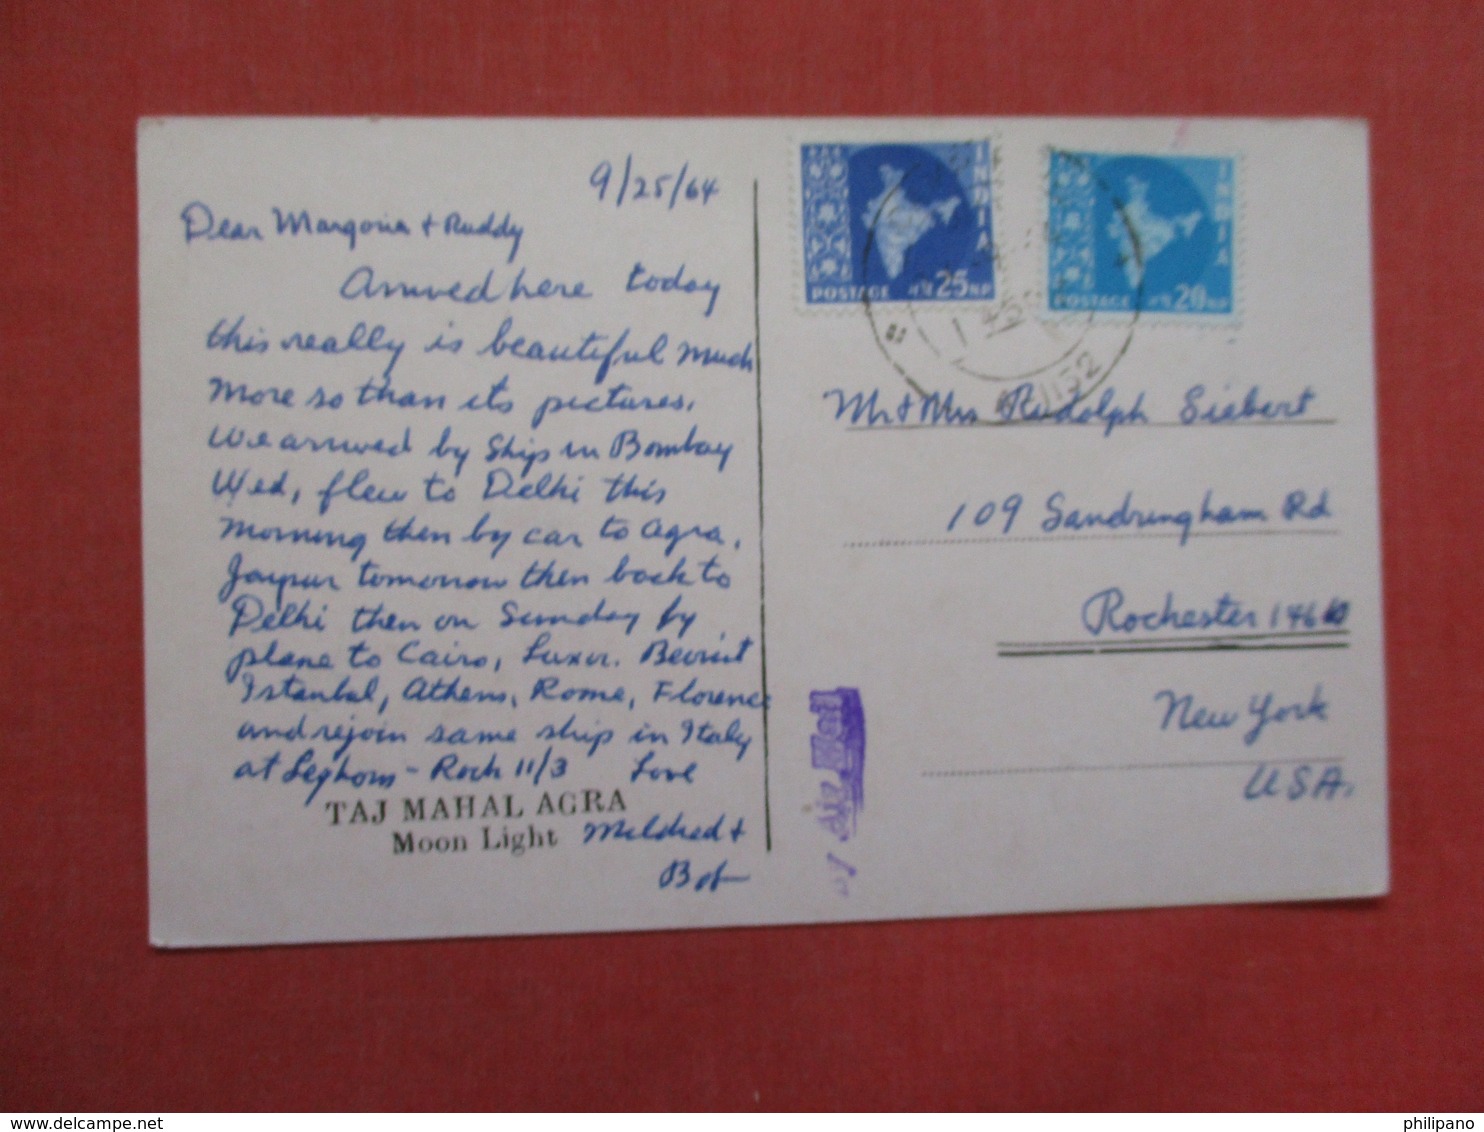 9/25/64
Dear Margoria + Ruddy
Arrived here today
this really is beautiful much
more so than its pictures.
We arrived by ship in Bombay
Wed, flew to Delhi this
morning then by car to Agra,
Jaipur tomorrow then back to
Delhi then on Sunday by
plane to Cairo, Luxor, Beirut
Istanbul, Athens, Rome, Florence
and rejoin same ship in Italy
at Leghorn - Rock 11/3 Love
TAJ MAHAL AGRA
Moon Light
Mildred +
Bob
INDIA
POSTAGE नपै 25 NP
INDIA
POSTAGE नपै 20 NP
Mr + Mrs Rudolph Siebert
109 Sandringham Rd
Rochester 14610
New York
USA.
Air Mail
delcampe.net
philipano